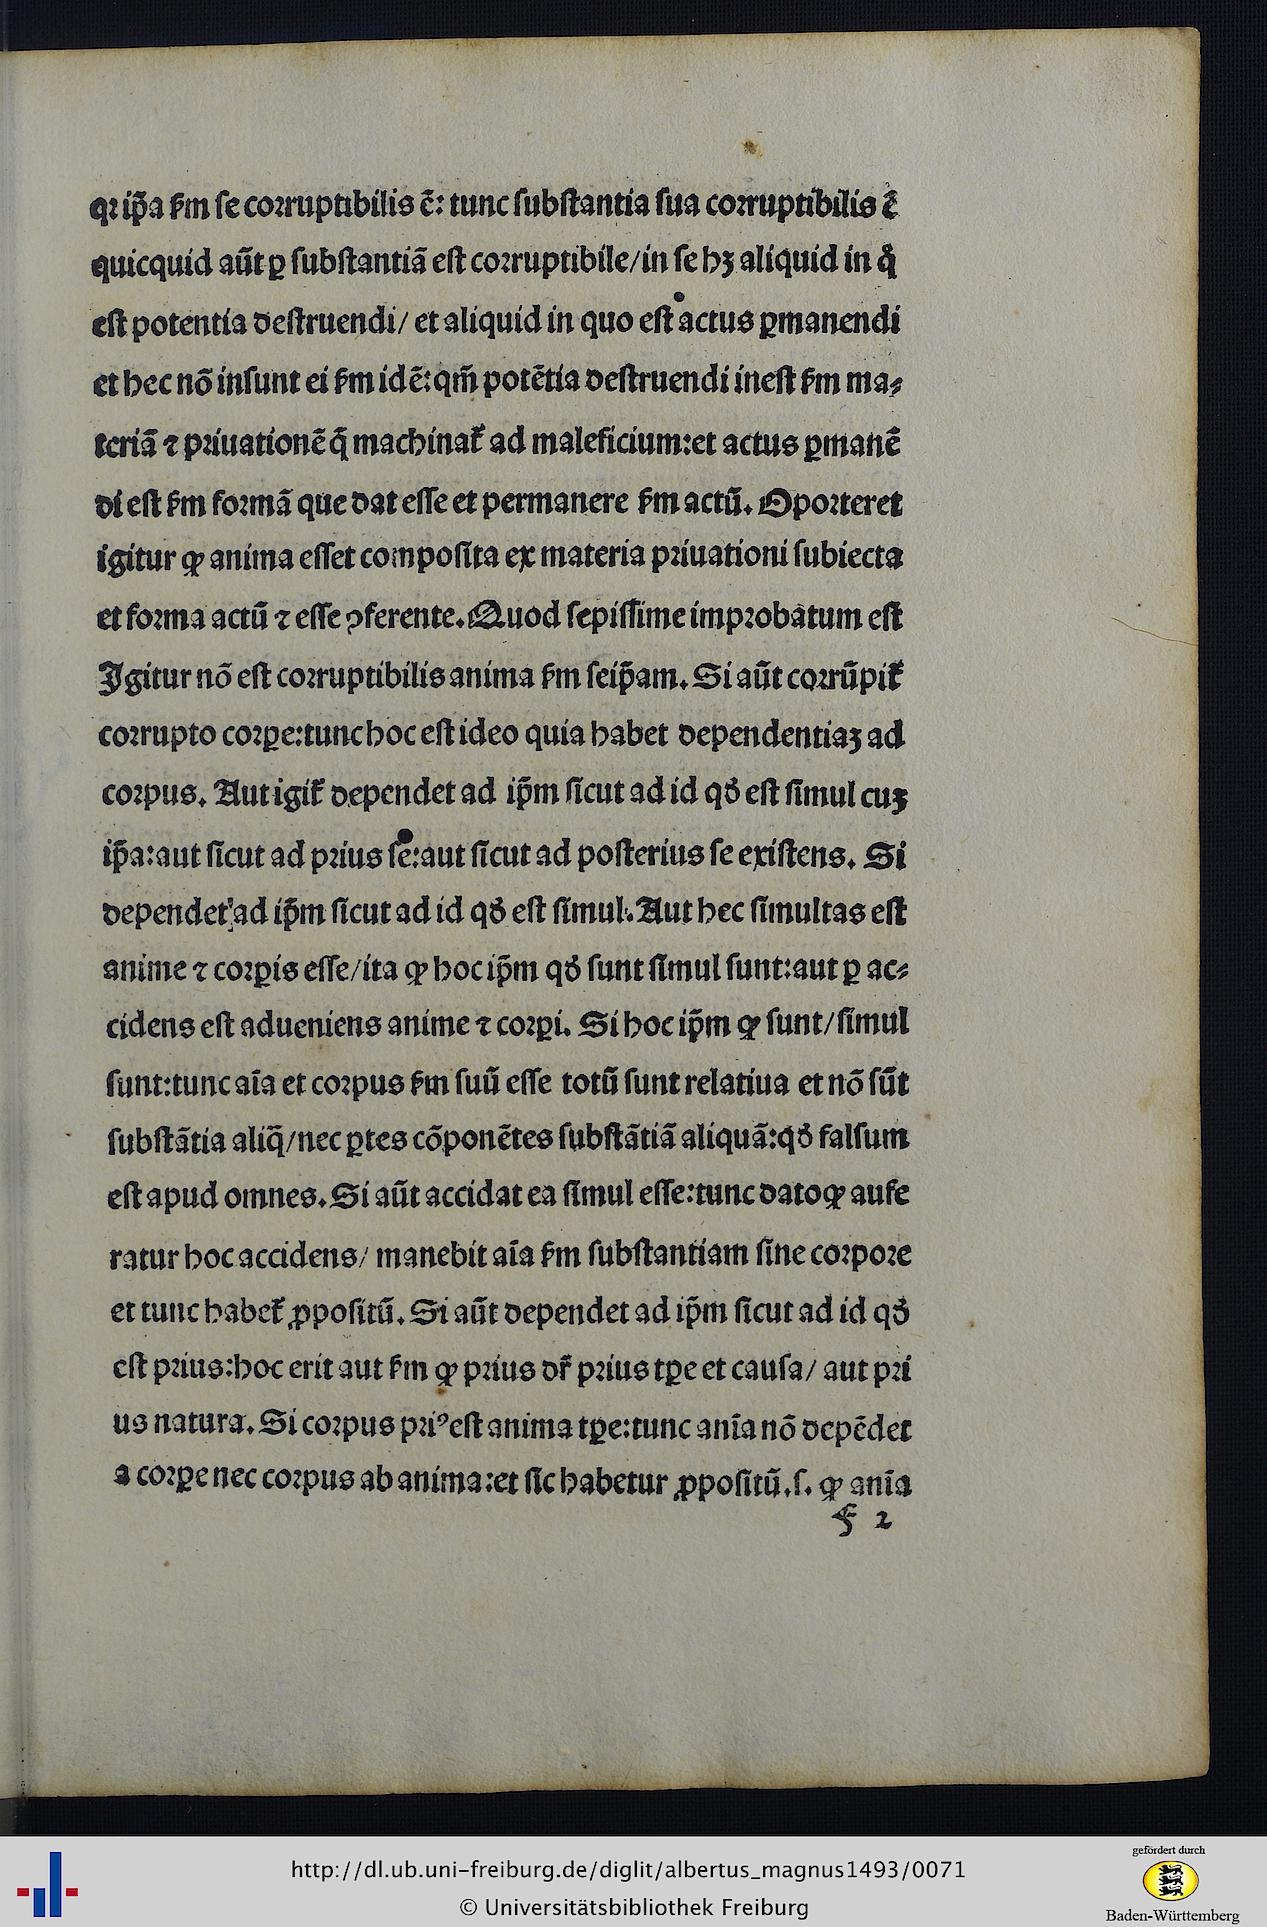 qꝛ ip̄a ẜm ſe coꝛruptibilis ē: tunc ſubſtantia ſua coꝛruptibilis ē
quicquid aūt ꝑ ſubſtantiā eſt coꝛruptibile/ in ſe hꝫ aliquid in q̊
eſt potentia deſtruendi/ et aliquid in quo eſt actus ꝑmanendi
et hec nō inſunt ei ẜm idē: qm̄ potētia deſtruendi ineſt ẜm ma⸗
teriā ⁊ pꝛiuationē q̄ machinat᷑ ad maleficium: et actus ꝑmanē
di eſt ẜm foꝛmā que dat eſſe et permanere ẜm actū. Opoꝛteret
igitur ꝙ anima eſſet compoſita ex materia pꝛiuationi ſubiecta
et foꝛma actū ⁊ eſſe ꝯferente. Quod ſepiſſime impꝛobatum eſt
Igitur nō eſt coꝛruptibilis anima ẜm ſeip̄am. Si aūt coꝛrūpit᷑
coꝛrupto coꝛꝑe: tunc hoc eſt ideo quia habet dependentiaꝫ ad
coꝛpus. Aut igit᷑ dependet ad ip̄m ſicut ad id qđ eſt ſimul cuꝫ
ip̄a: aut ſicut ad pꝛius ſe: aut ſicut ad poſterius ſe exiſtens. Si
dependet ad ip̄m ſicut ad id qđ eſt ſimul. Aut hec ſimultas eſt
anime ⁊ coꝛꝑis eſſe/ ita ꝙ hoc ip̄m qđ ſunt ſimul ſunt: aut ꝑ ac⸗
cidens eſt adueniens anime ⁊ coꝛꝑi. Si hoc ip̄m ꝙ ſunt/ ſimul
ſunt: tunc aīa et coꝛpus ẜm ſuū eſſe totū ſunt relatiua et nō ſūt
ſubſtātia aliq̄/ nec ꝑtes cōponētes ſubſtātiā aliquā: qđ falſum
eſt apud omnes. Si aūt accidat ea ſimul eſſe: tunc dato ꝙ aufe
ratur hoc accidens/ manebit aīa ẜm ſubſtantiam ſine coꝛpoꝛe
et tunc habet᷑ ꝓpoſitū. Si aūt dependet ad ip̄m ſicut ad id qđ
eſt pꝛius: hoc erit aut ẜm ꝙ pꝛius dꝛ̄ pꝛius tꝑe et cauſa/ aut pꝛi
us natura. Si coꝛpus pꝛiꝰ eſt anima tꝑe: tunc anīa nō depēdet
a coꝛꝑe nec coꝛpus ab anima: et ſic habetur ꝓpoſitū. ſ. ꝙ anīa
2
http://dl.ub.uni-freiburg.de/diglit/albertus_magnus1493/0071
© Universitätsbibliothek Freiburg
gefördert durch
Baden-Württemberg